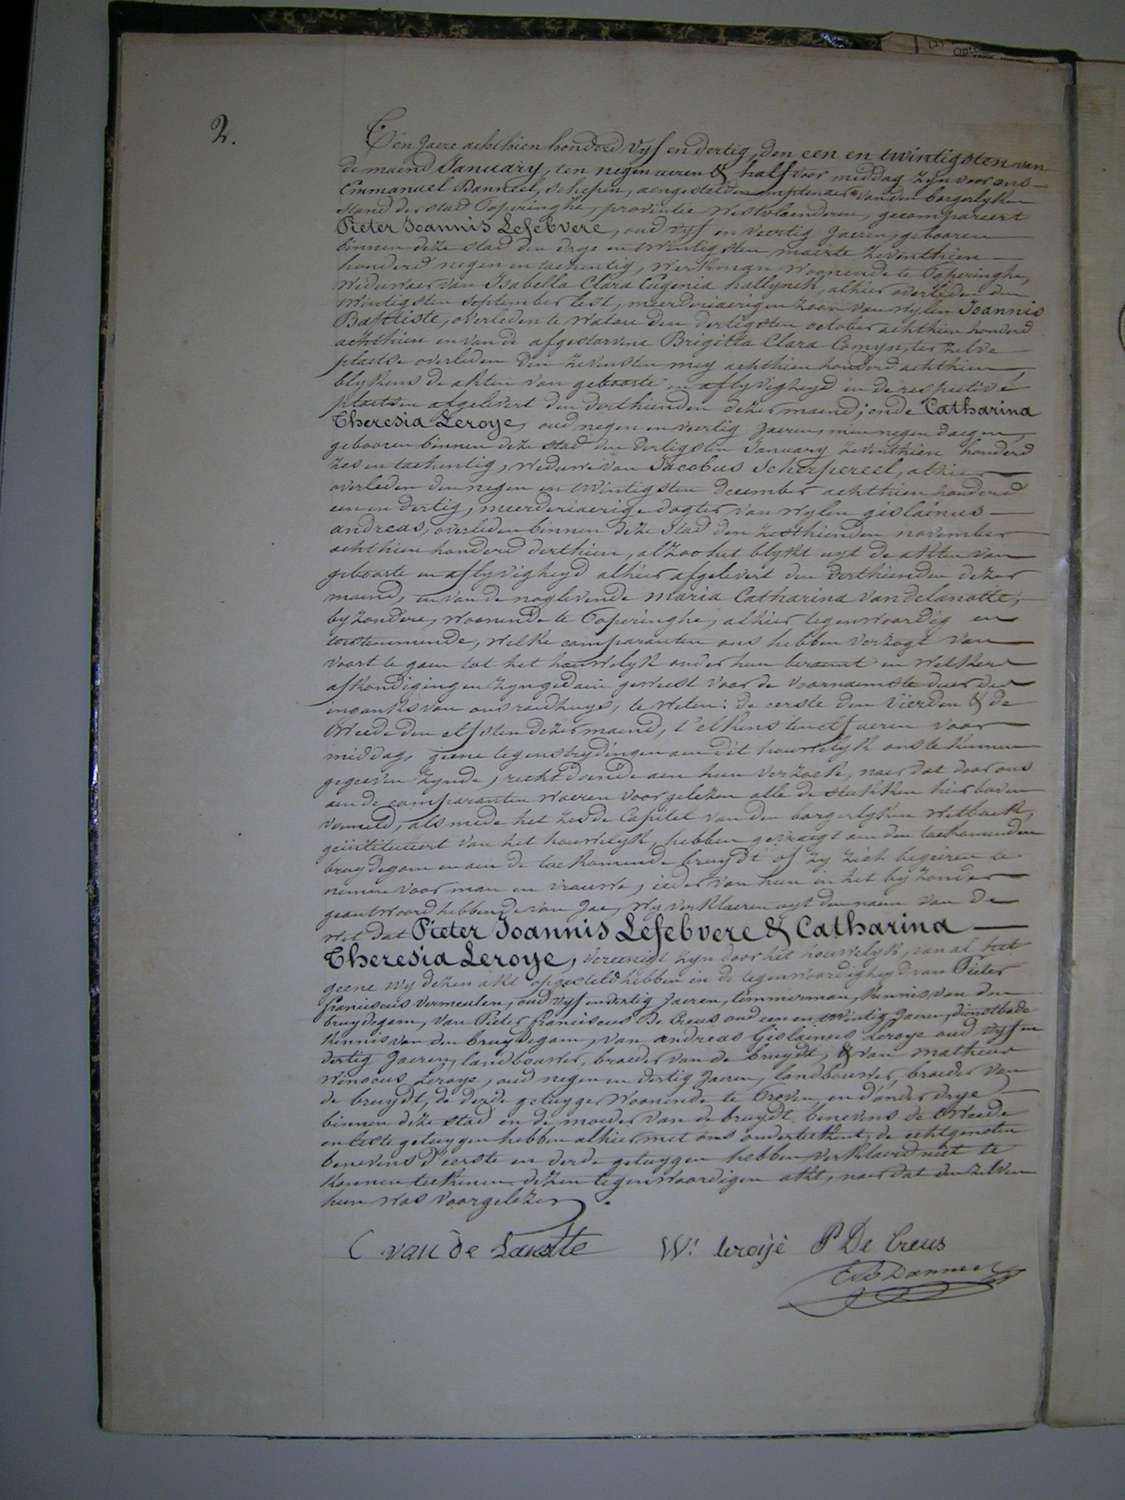 2.
T'en Jaere achthien honderd vyf en dertig, den een en twintigsten van
de maend January, ten negen ueren & half voor middag zyn voor ons
Emmanuel Danneel, schepen, aengestelden van den borgerlyken
stand der stad Poperinghe, provintie Westvlaenderen, gecompareert
Pieter Joannis Lefebvere, oud vyf en veertig Jaeren, gebooren
binnen deze stad den drye en twintigsten maerte zeventhien
honderd negen en tachentig, werkman woonende te Poperinghe,
weduwaer van Isabella Clara Eugenia hallynck, alhier overleden den
twintigsten september lest, meerderjaerigen zoon van wylen Joannis
Baptiste, overleden te Watou den dertigsten october achthien honderd
achthien en van de afgestorvene Brigitta Clara Comyn, ter zelve
plaetse overleden den zevensten mey achthien honderd achthien,
blykens de akten van geboorte en aflyvigheyd in de respective
plaetsen afgelevert den derthienden dezer maend; ende Catharina
Theresia Leroye, oud negen en veertig Jaeren, min negen daegen,
gebooren binnen deze stad den dertigsten January zeventhien honderd
zes en tachentig, weduwe van Jacobus Scherpereel, alhier
overleden den negen en twintigsten december achthien honderd
een en dertig, meerderjaerige dogter van wylen gislainus
andreas, overleden binnen deze stad den zesthienden november
achthien honderd derthien, alzoo het blykt uyt de akten van
geboorte en aflyvigheyd alhier afgelevert den derthienden dezer
maend, en van de noglevende maria Catharina vandelanotte,
byzondere, woonende te Poperinghe, alhier tegenwoordig en
toestemmende, welke comparanten ons hebben verzogt van
voort te gaen tot het houwelyk onder hun beraemt en welkers
afkondigingen zyn gedaen geweest voor de voornaemste deur der
van ons raedhuys, te weten: de eerste den vierden & de
tweede den elfsten dezer maend, t'elkens ten elf ueren voor
middag, geene tegenstrydingen aen dit houwelyk ons te kennen
gegeven zynde, recht doende aen hun verzoek, naer dat door ons
aen de comparanten waeren voorgelezen alle de stukken hier boven
vermeld, als mede het zesde Capitel van den borgerlyken wetboek,
geïntituleert van het houwelyk, hebben gevraegt aen den toekomenden
bruydegom en aen de toekomende bruydt of zy zich begeiren te
nemen voor man en vrouwe, ieder van hun in het byzonder
geantwoord hebbende van Jae, wy verklaeren uyt den naem van de
wet dat Pieter Joannis Lefebvere & Catharina
Theresia Leroye, vereenigt zyn door het houwelyk, van al het
geene wy dezen akt opgesteld hebben in de tegenwoordigheyd van Pieter
franciscus vermeulen, oud vyf en dertig Jaeren, timmerman, kennis van den
bruydegom, van Pieter franciscus De Creus oud een en twintig Jaeren, dienstbode
kennis van den bruydegom, van andreas Gislainus Leroye oud vyf en
dertig Jaeren, landbouwer, broeder van de bruydt, & van matheus
Winocus Leroye, oud negen en dertig Jaeren, landbouwer, broeder van
de bruydt, de derde getuyge woonende te Proven, en d'andere drye
binnen deze stad en de moeder van de bruydt benevens de tweede
en leste getuygen hebben alhier met ons onderteekent, de echtgenoten
benevens d'eerste en derde getuygen hebben verklaerd niet te
konnen teekenen dezen tegenwoordigen akt, naer dat den zelven
hun was voorgelezen.
C van de Lanotte W: leroÿe P De Creus
E Danneel